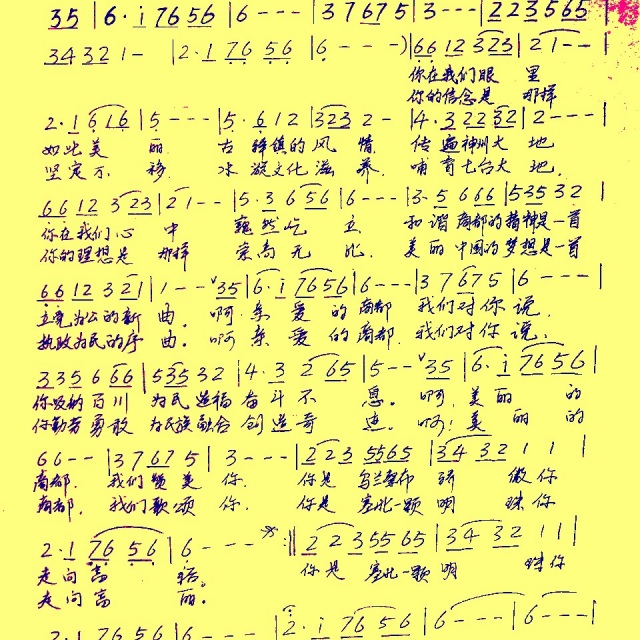 35 | 6· i 7656 | 6 - - - | 3 7 67 5 | 3 - - - | 2 2 3 5 6 5
3432 1 - | 2·1 76 56 | 6 - - - ) | 66 12 323 | 2 1 - - |
你在我们眼 里
你的信念是 那样
2·1 6 16 | 5 - - - | 5· 6 12 | 323 2 - | 4·3 22 32 | 2 - - - |
如此美 丽 古 镇的风 情 传 遍神州大 地
坚定不 移 水 文化滋 养 哺 育七台大 地
66 12 3 23 | 2 1 - - | 5·3 6 56 | 6 - - - | 3·5 6 66 | 535 3 2 |
你在我们心 中 巍然屹 立 和 谐 商都的精神是一首
你的理想是 那样 崇高无 比 美 丽 中国的梦想是一首
66 12 3 21 | 1 - - 35 | 6· i 7656 | 6 - - - | 3 7 675 | 6 - - - |
立党为公的新 曲。 啊 亲 爱 的 商都 我们对你 说,
执政为民的序 曲。 啊 亲 爱 的 商都 我们对你 说,
335 6 66 | 535 32 | 4·3 2 65 | 5 - - 35 | 6· i 7656 |
你吸纳 百川 为民 造福 奋 斗 不 息。 啊, 美 丽 的
你勤劳 勇敢 为民族融合 创 造 奇 迹。 啊! 美 丽 的
6 6 - - | 3 7 67 5 | 3 - - - | 2 2 3 5565 | 34 32 1 1 |
商都, 我们 赞 美 你. 你是 乌兰察布 骄 傲 你
商都, 我们歌 颂 你. 你是 塞北一颗 明 珠 你
2·1 76 56 | 6 - - - :‖ 2 2 3 55 65 | 34 32 1 1 |
走向富 裕。 你是 塞北一颗 明 珠 你
走向富 丽。
2·1 76 56 | 6 - - - | 2· i 76 56 | 6 - - - | 6 - - - |